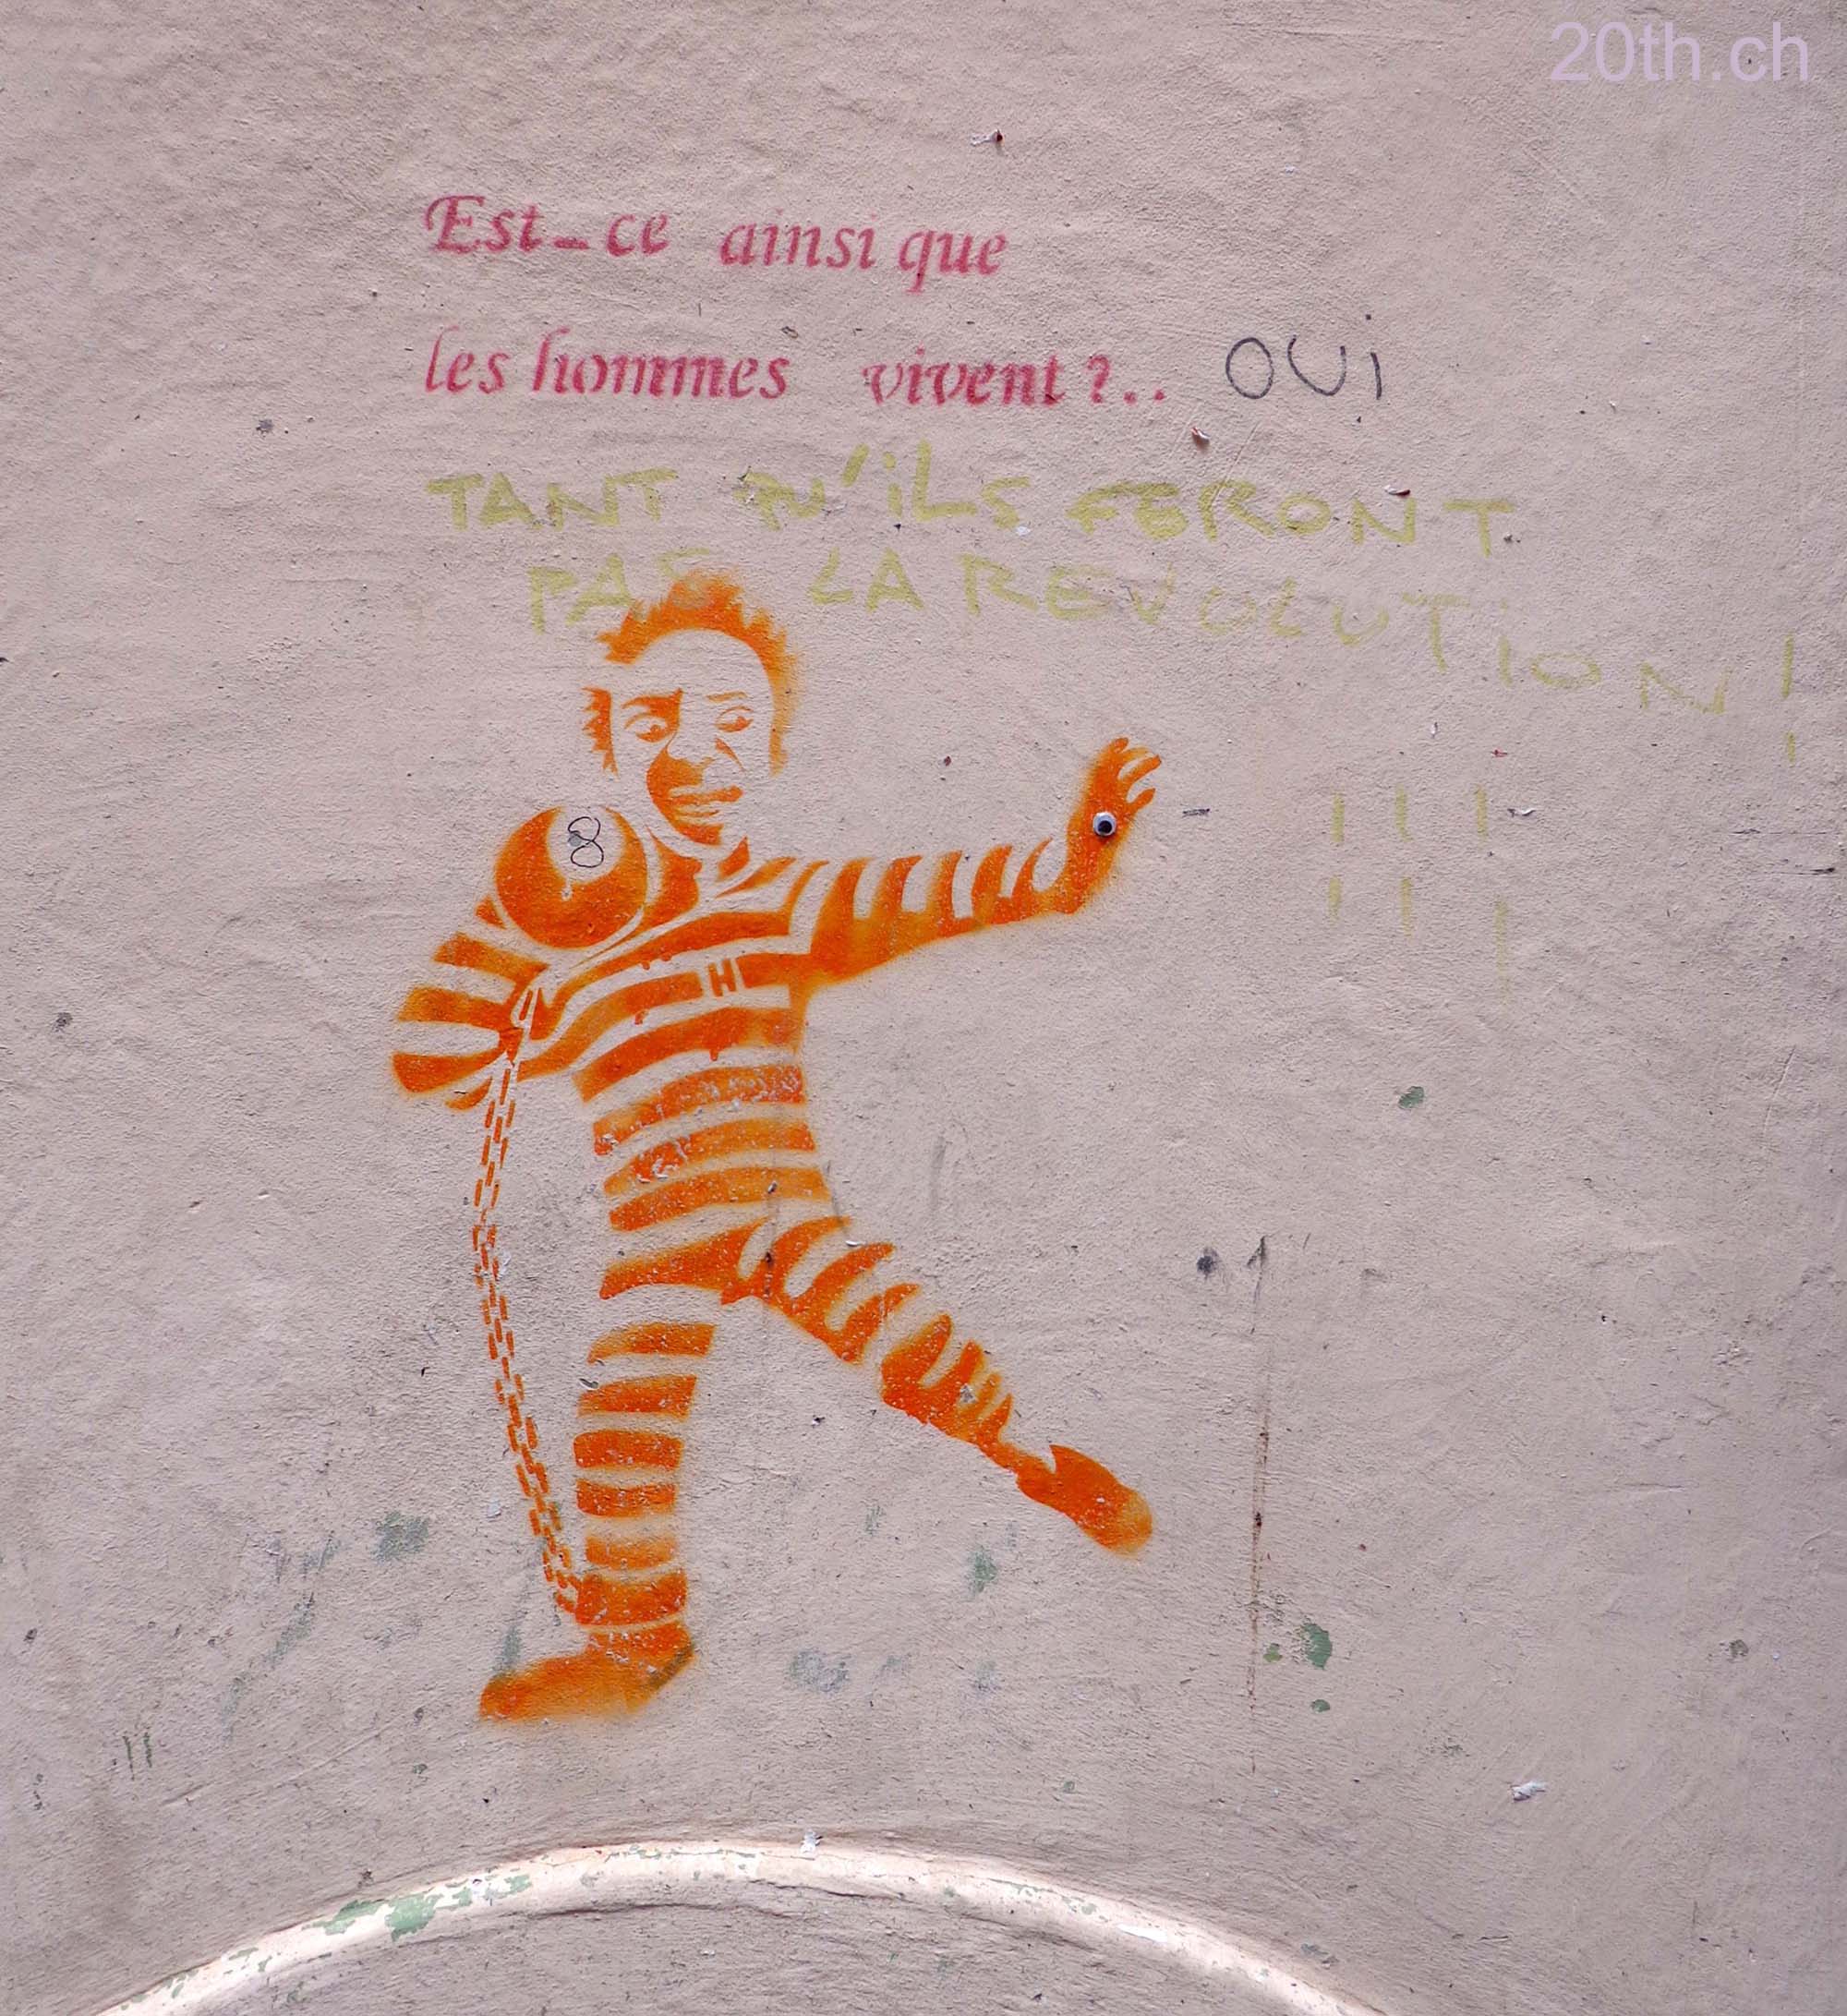 20th.ch
Est-ce ainsi que
les hommes vivent ?.. OUi
TANT QU'iLS FERONT
PAS LA REVOLUTiON !
! ! !
8
H